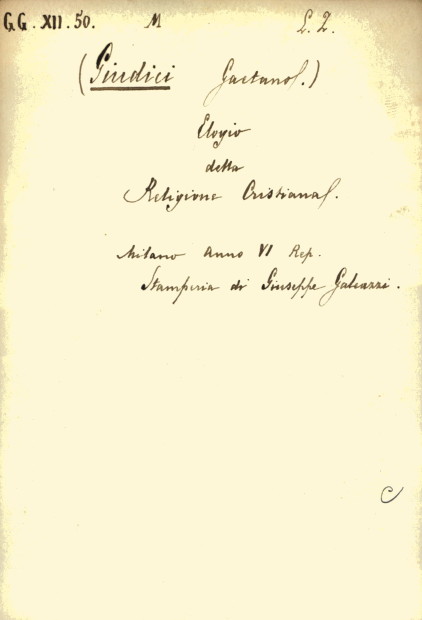 GG. XII. 50. M L. 2.
(Giudici Gaetano.)
Elogio
della
Religione Cristiana.
Milano Anno VI Rep.
Stamperia di Giuseppe Galeazzi.
C